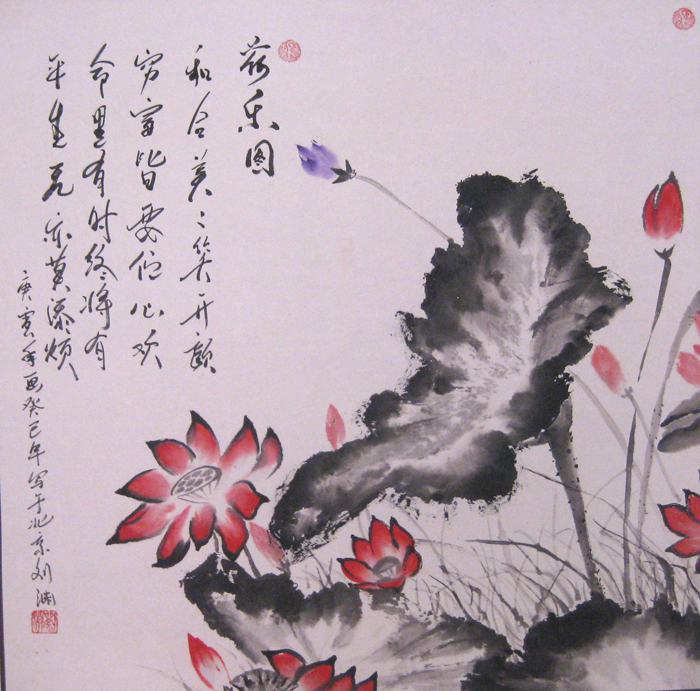 荷乐图
和合美〻笑开颜
穷富皆要心欢
命里有时终将有
平生无莫添烦
庚寅年画癸巳年写于北京刘渊